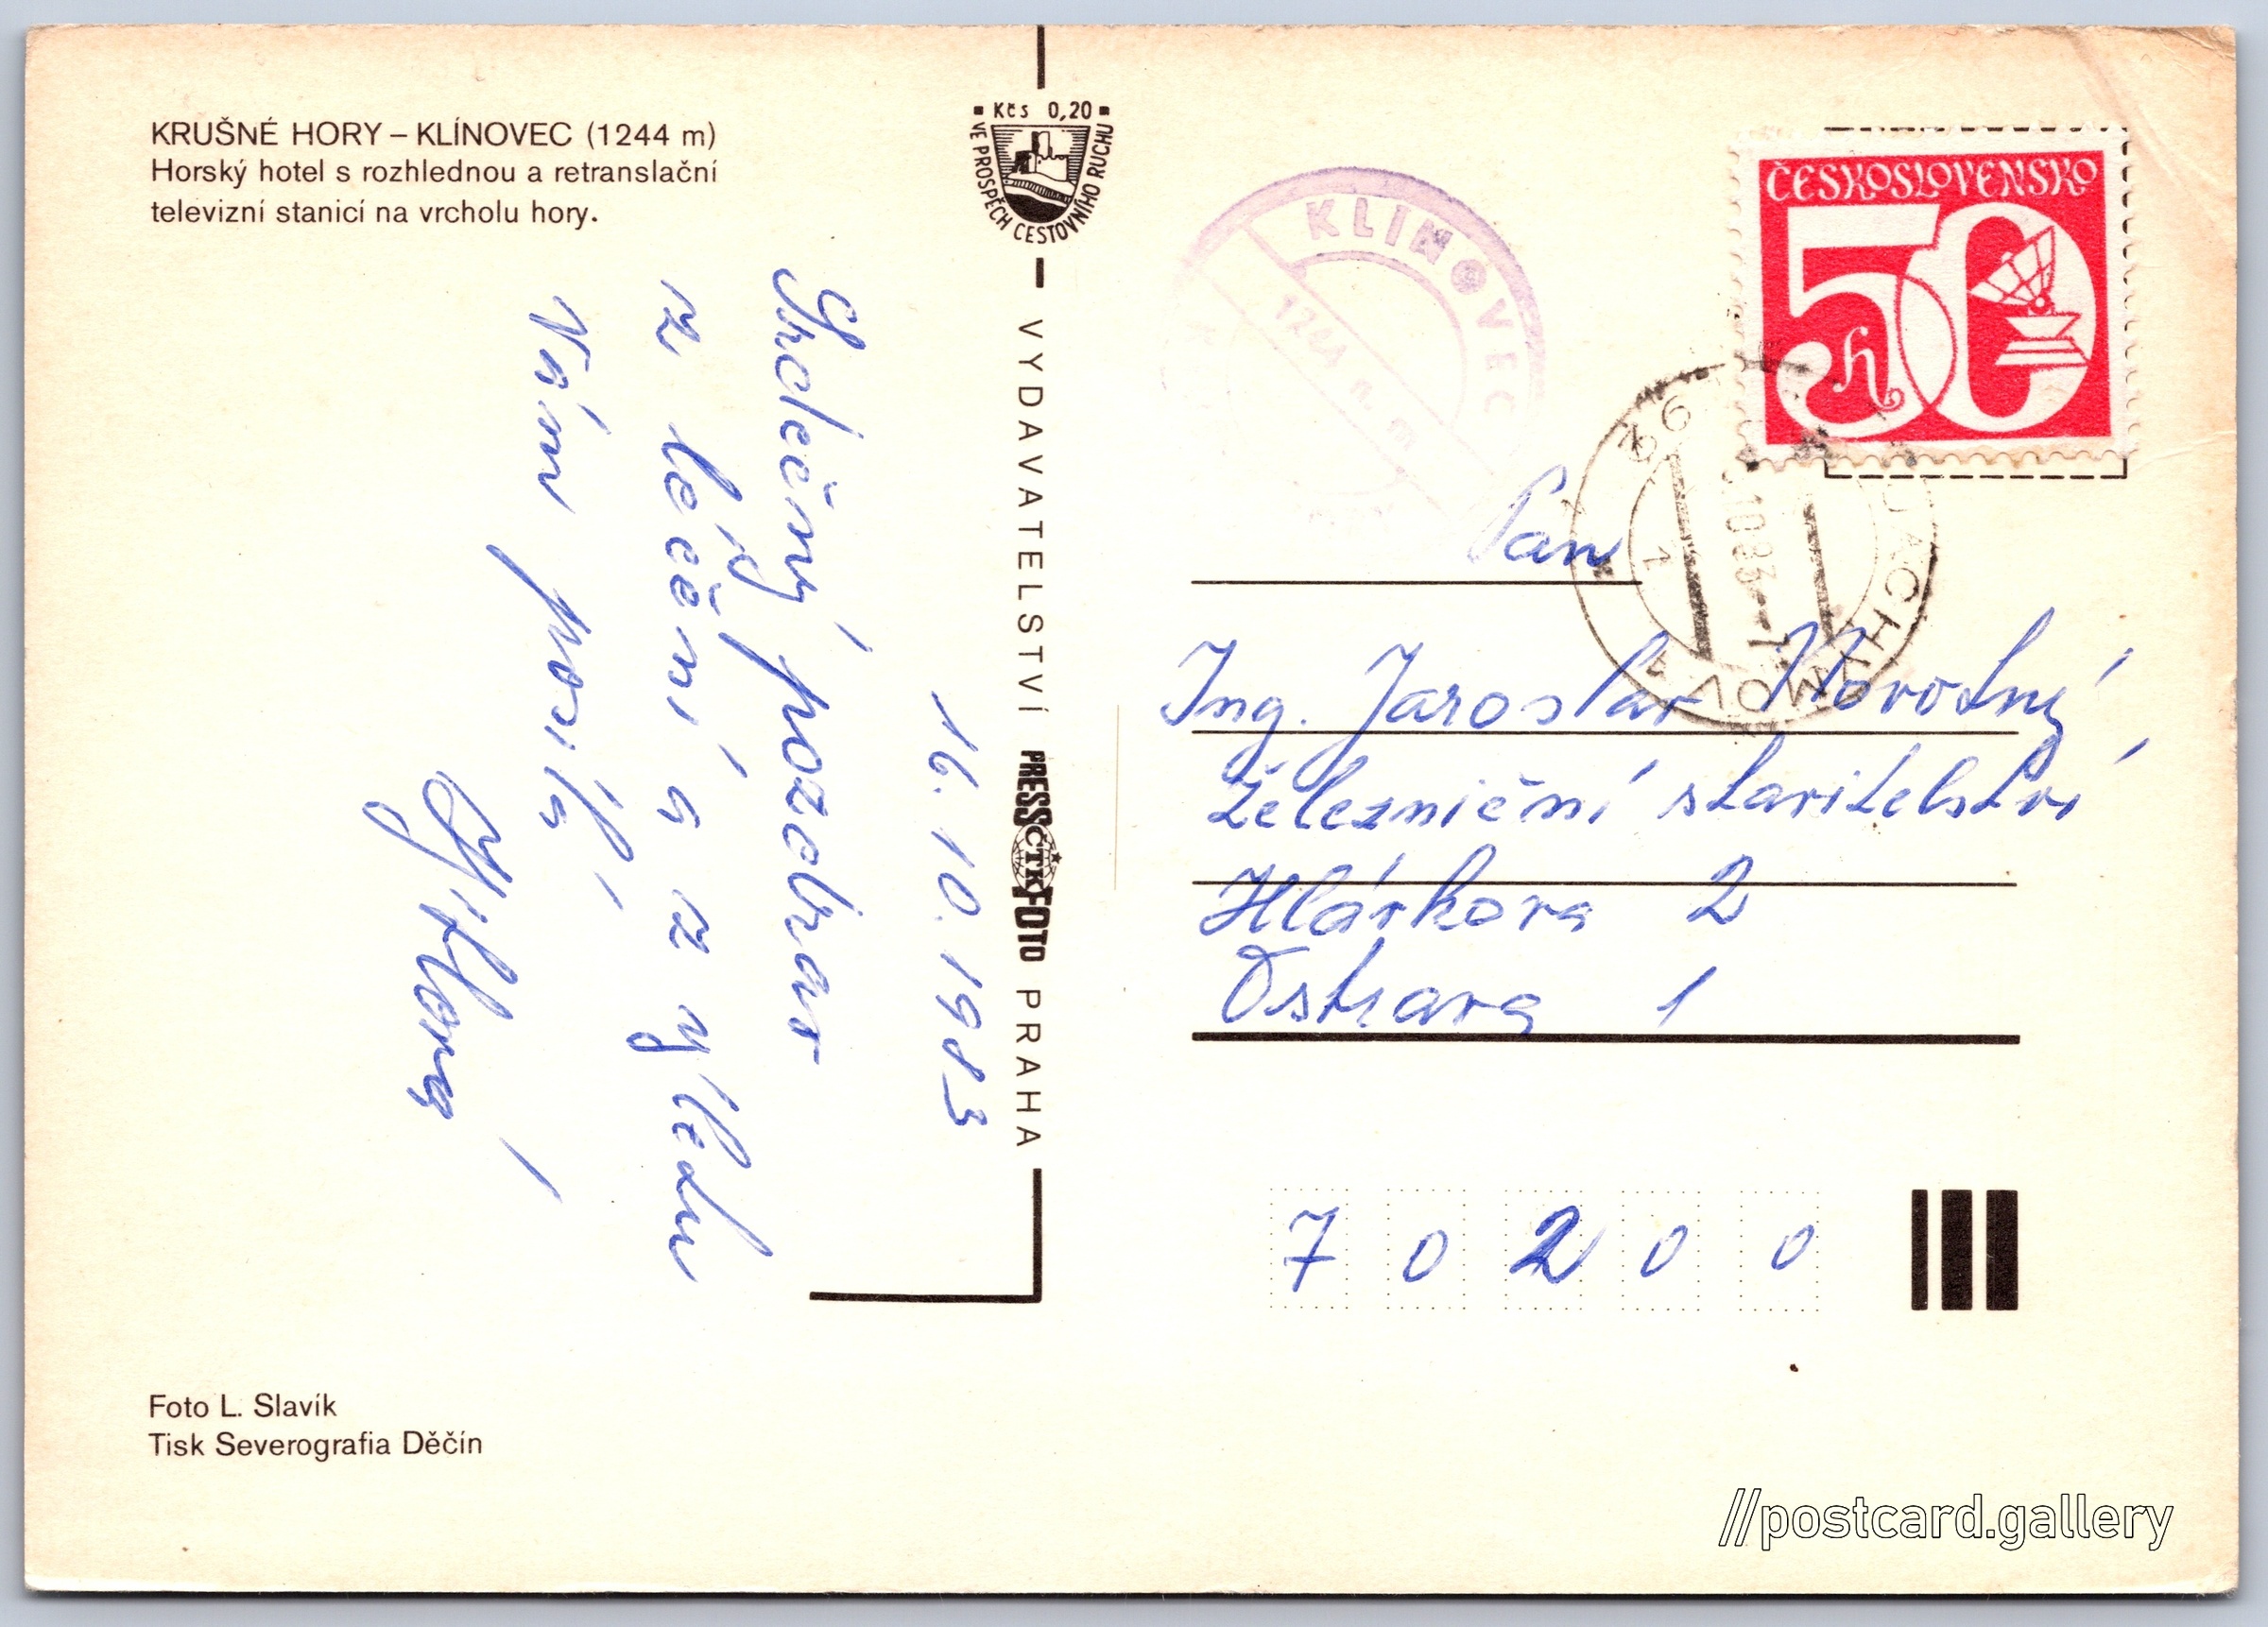 KRUŠNÉ HORY – KLÍNOVEC (1244 m)
Horský hotel s rozhlednou a retranslační
televizní stanicí na vrcholu hory.
16. 10. 1983
Srdečný pozdrav
z léčení a z výletu
Vám posílá
Foto L. Slavík
Tisk Severografia Děčín
Kčs 0,20
VE PROSPĚCH CESTOVNÍHO RUCHU
VYDAVATELSTVÍ PRESSFOTO PRAHA
ČTK
KLÍNOVEC
1244 m
ČESKOSLOVENSKO
50 h
.10.83-7
JÁCHYMOV
1
Pan
Ing. Jaroslav Novotný
Železniční stavitelství
Hlávkova 2
Ostrava 1
70200
//postcard.gallery